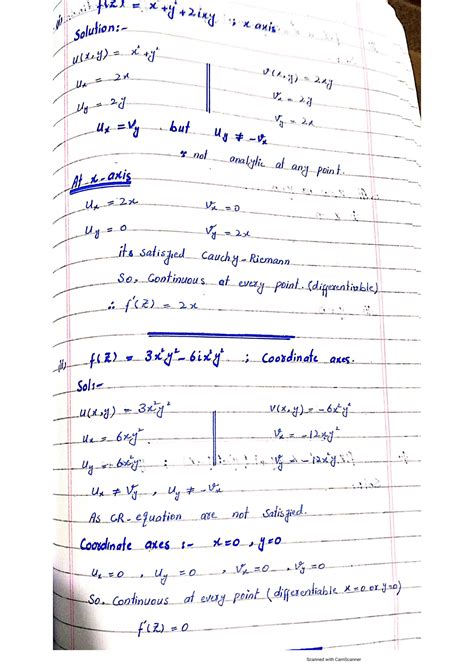 f(z) = x²+y²+2ixy ; x axis
Solution:-
u(x,y) = x²+y²
v(x,y) = 2xy
uₓ = 2x
vₓ = 2y
u_y = 2y
v_y = 2x
uₓ = v_y but u_y ≠ -vₓ
not analytic at any point.
At x-axis
uₓ = 2x vₓ = 0
u_y = 0 v_y = 2x
its satisfied Cauchy-Riemann
So, Continuous at every point. (differentiable)
∴ f'(z) = 2x
f(z) = 3x²y² - 6ix²y² ; Coordinate axes.
Sol:-
u(x,y) = 3x²y² v(x,y) = -6x²y²
uₓ = 6xy² vₓ = -12xy²
u_y = 6x²y v_y = -12x²y
uₓ ≠ v_y , u_y ≠ -vₓ
As CR-equation are not Satisfied.
Coordinate axes :- x=0 , y=0
uₓ = 0 , u_y = 0 , vₓ = 0 , v_y = 0
So, Continuous at every point (differentiable x=0 or y=0)
f'(z) = 0
Scanned with CamScanner